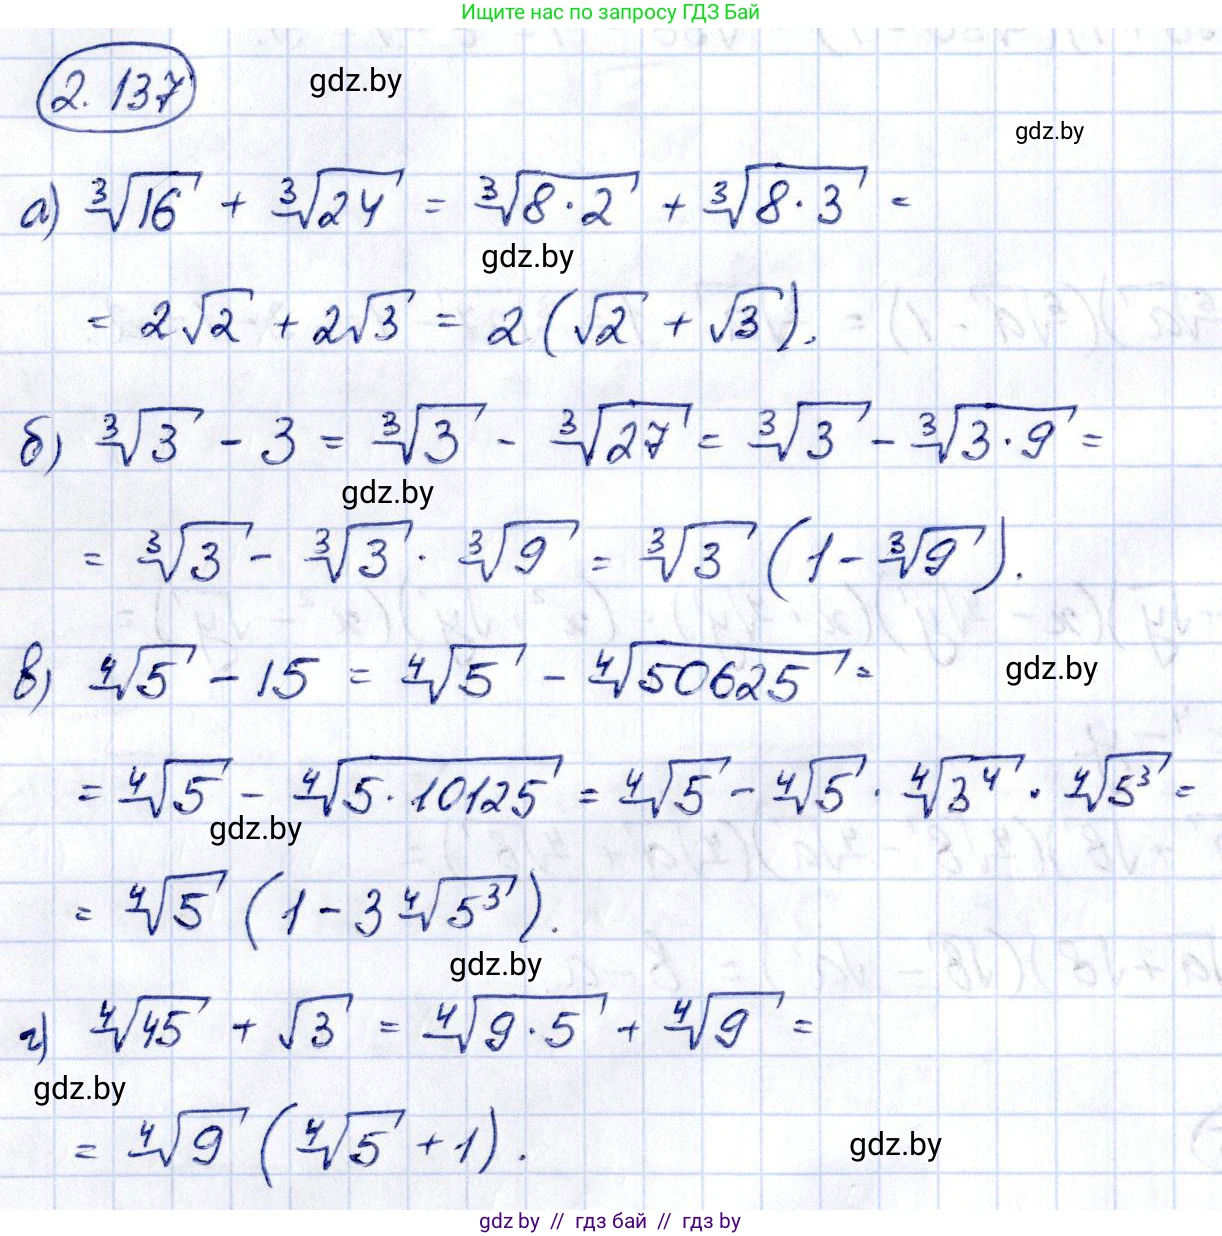 Ищите нас по запросу ГДЗ Бай
2.137
gdz.by
gdz.by
а) ∛16 + ∛24 = ∛8·2 + ∛8·3 =
gdz.by
= 2√2 + 2√3 = 2(√2 + √3).
б) ∛3 - 3 = ∛3 - ∛27 = ∛3 - ∛3·9 =
gdz.by
= ∛3 - ∛3 · ∛9 = ∛3 (1 - ∛9).
в) ∜5 - 15 = ∜5 - ∜50625 =
gdz.by
= ∜5 - ∜5·10125 = ∜5 - ∜5 · ∜3⁴ · ∜5³ =
gdz.by
= ∜5 (1 - 3∜5³).
gdz.by
г) ∜45 + √3 = ∜9·5 + ∜9 =
gdz.by
= ∜9 (∜5 + 1).
gdz.by
gdz by // гдз бай // гдз by